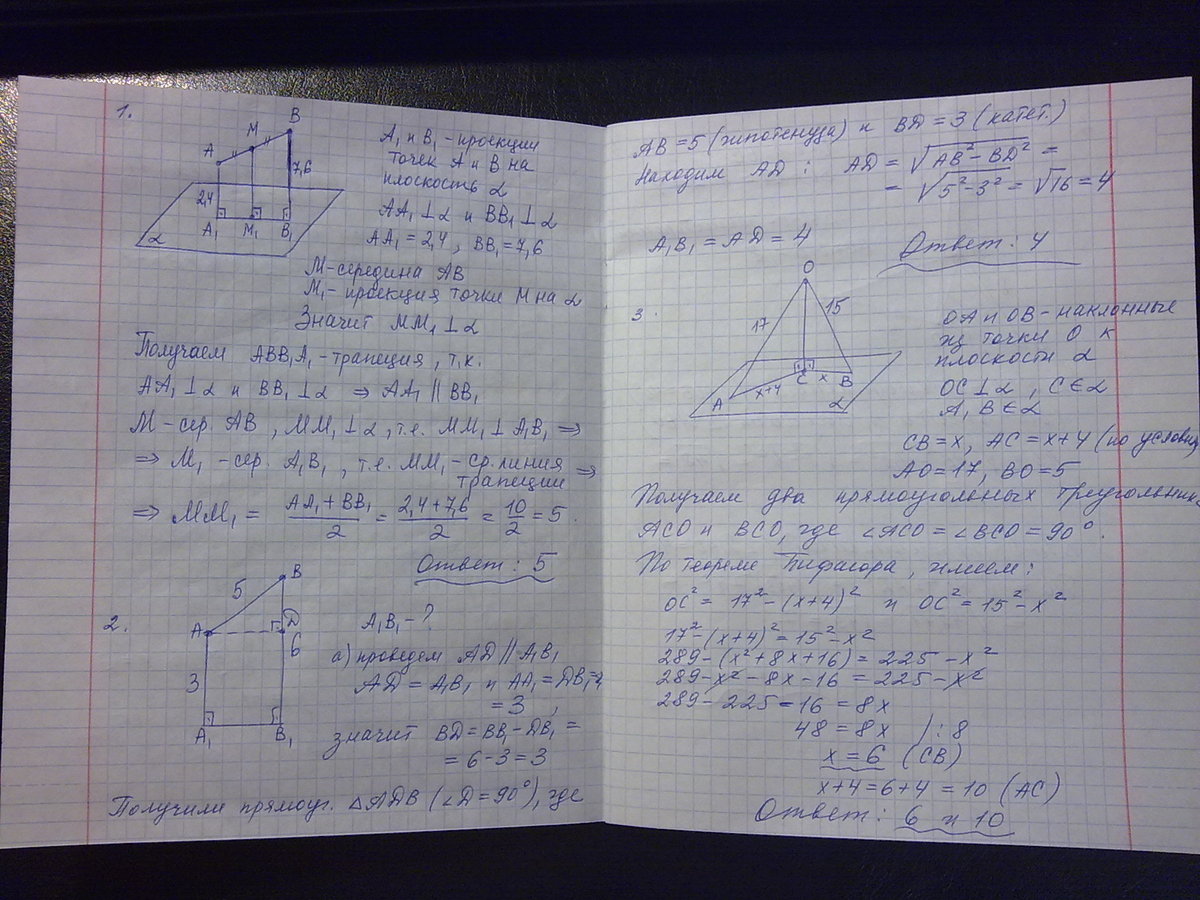 1.
B
M
A
7,6
2,4
A₁ M₁ B₁
α
A₁ и B₁ - проекции
точек A и B на
плоскость α
AA₁ ⊥ α и BB₁ ⊥ α
AA₁ = 2,4, BB₁ = 7,6
M - середина AB
M₁ - проекция точки M на α
Значит MM₁ ⊥ α
Получаем ABB₁A₁ - трапеция, т.к.
AA₁ ⊥ α и BB₁ ⊥ α ⇒ AA₁ || BB₁
M - сер. AB, MM₁ ⊥ α, т.е. MM₁ ⊥ A₁B₁ ⇒
⇒ M₁ - сер. A₁B₁, т.е. MM₁ - ср. линия
трапеции ⇒
⇒ MM₁ = (AA₁ + BB₁)/2 = (2,4 + 7,6)/2 = 10/2 = 5.
Ответ: 5
2.
B
5
A
D
6
3
A₁ B₁
A₁B₁ - ?
а) проведем AD || A₁B₁
AD = A₁B₁ и AA₁ = DB₁ =
= 3,
значит BD = BB₁ - DB₁ =
= 6 - 3 = 3
Получили прямоуг. △ADB (∠D = 90°), где
AB = 5 (гипотенуза) и BD = 3 (катет.)
Находим AD: AD = √(AB² - BD²) =
= √(5² - 3²) = √16 = 4
A₁B₁ = AD = 4
Ответ: 4
3.
O
17
15
A
x+4
C
x
B
α
OA и OB - наклонные
из точки O к
плоскости α
OC ⊥ α, C ∈ α
A, B ∈ α
CB = x, AC = x+4 (по условию
AO = 17, BO = 5
Получаем два прямоугольных треугольник
ACO и BCO, где ∠ACO = ∠BCO = 90°.
По теореме Пифагора, имеем:
OC² = 17² - (x+4)² и OC² = 15² - x²
17² - (x+4)² = 15² - x²
289 - (x² + 8x + 16) = 225 - x²
289 - x² - 8x - 16 = 225 - x²
289 - 225 - 16 = 8x
48 = 8x /:8
x = 6 (CB)
x+4 = 6+4 = 10 (AC)
Ответ: 6 и 10